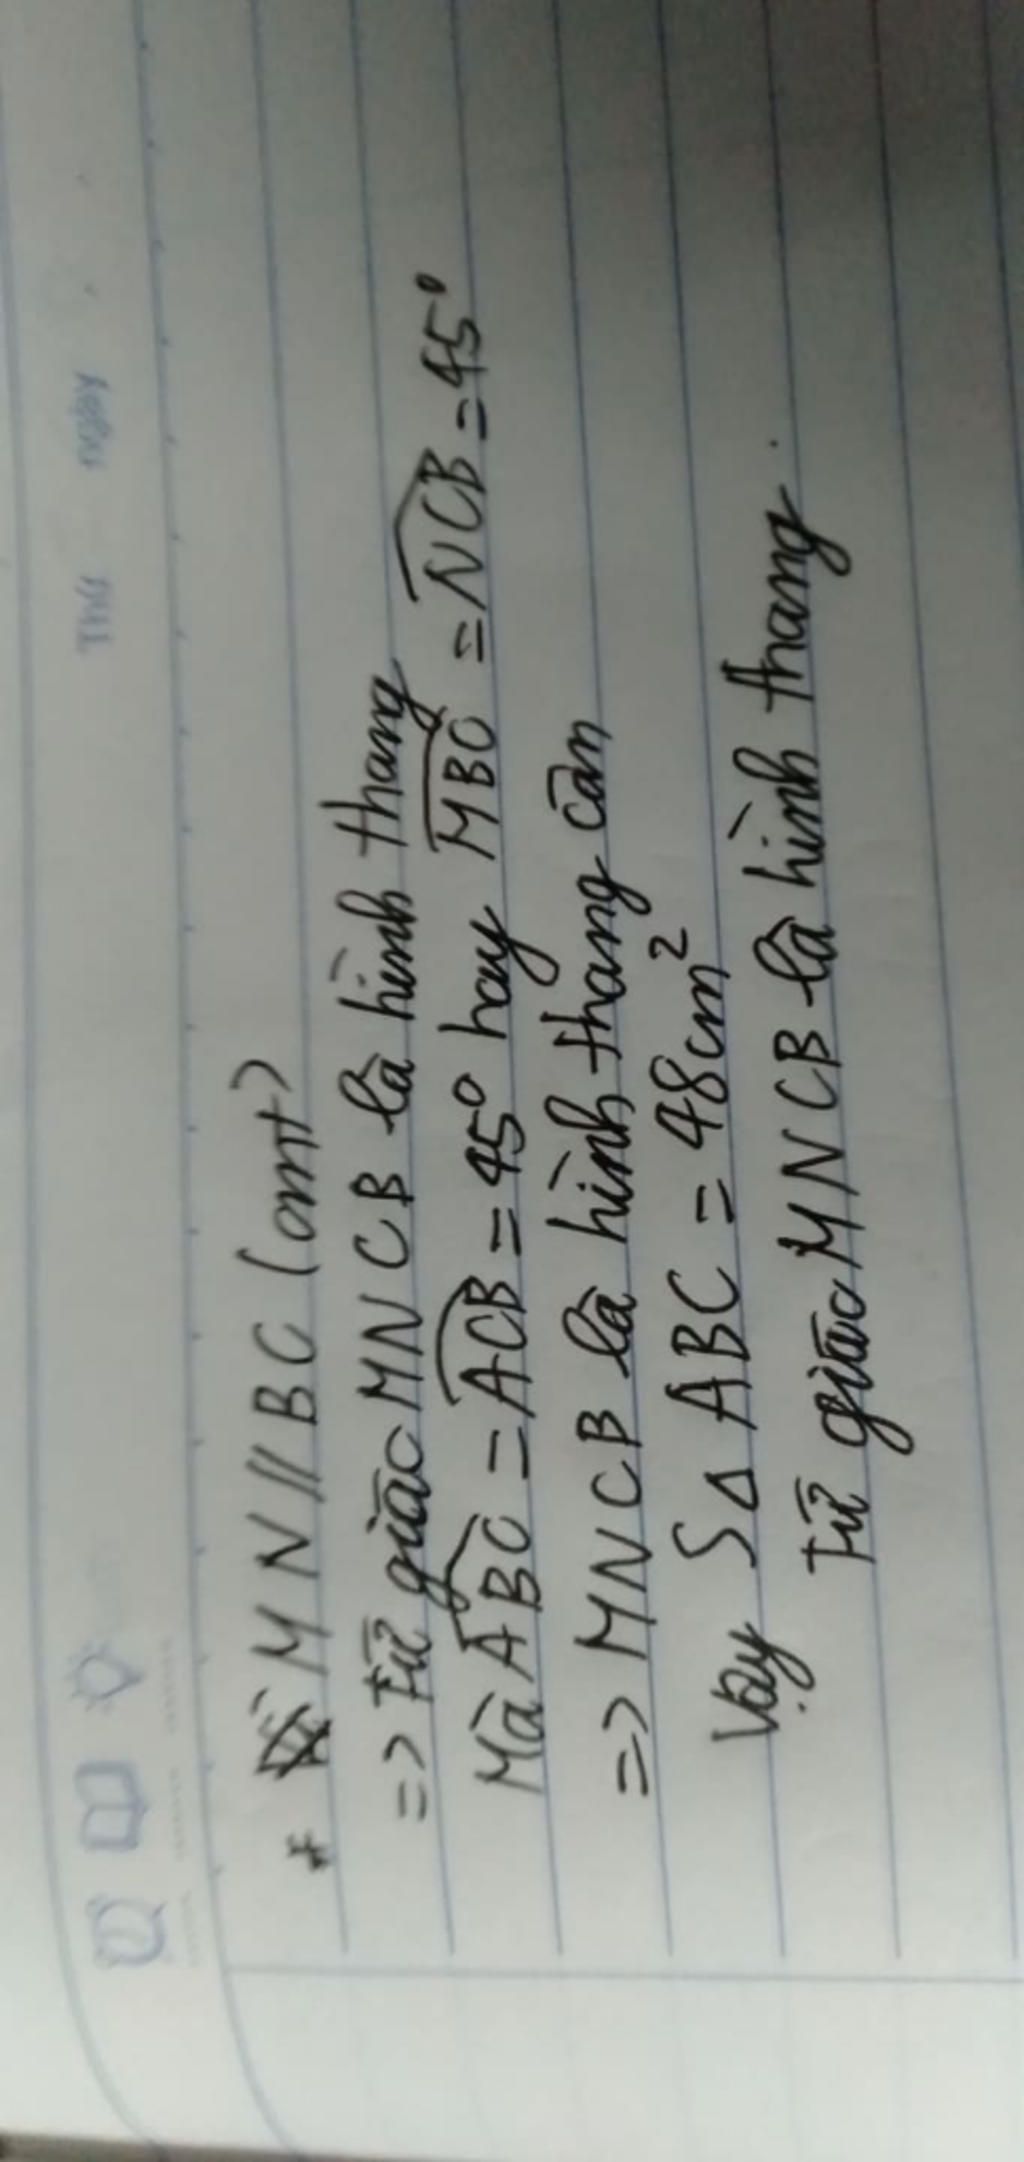 Thứ Ngày
* MN // BC (cmt)
=> Tứ giác MNCB là hình thang
Mà ABC = ACB = 45° hay MBC = NCB = 45°
=> MNCB là hình thang cân
Vậy S∆ABC = 48cm²
Tứ giác MNCB là hình thang.